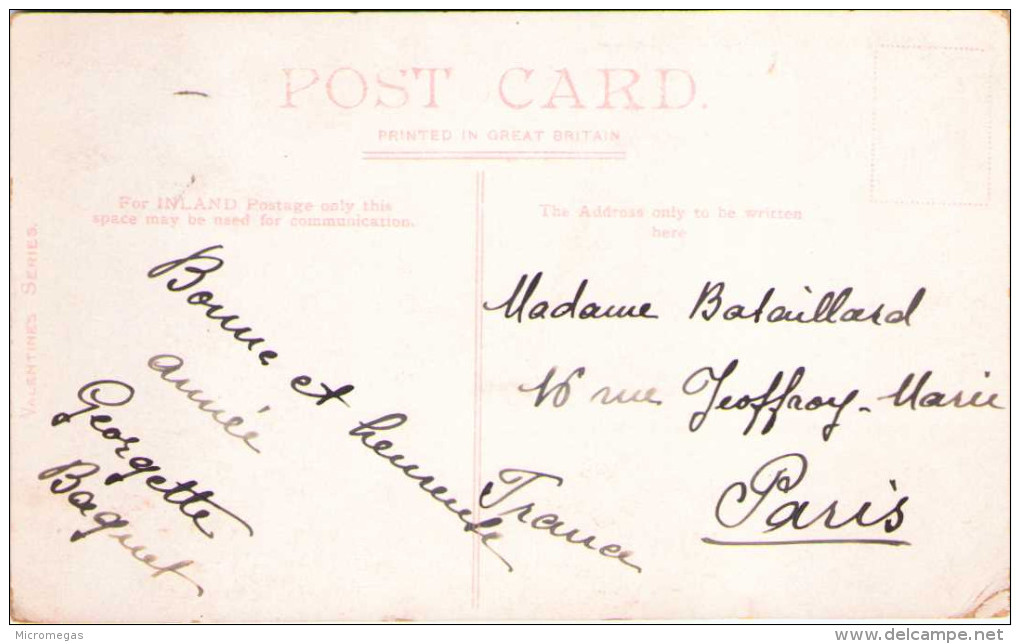 POST CARD.
PRINTED IN GREAT BRITAIN
For INLAND Postage only this
space may be used for communication.
The Address only to be written
here
VALENTINES SERIES.
Bonne et heureuse
année
Georgette
Baquet
Madame Bataillard
16 rue Geoffroy-Marie
Paris
France
Micromegas
delcampe.net